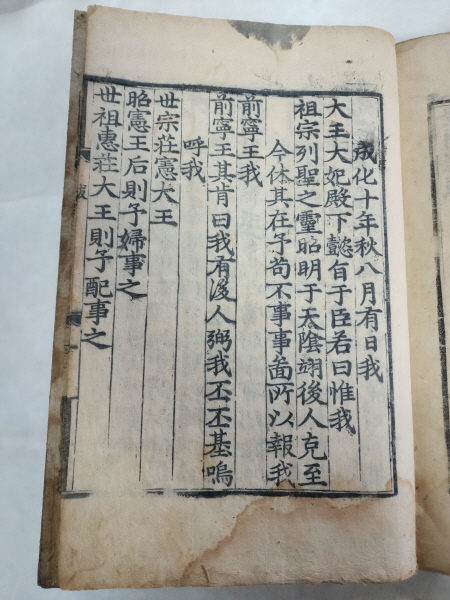 成化十年秋八月有日我
大王大妃殿下懿旨于臣若曰惟我
祖宗列聖之靈昭明于天陰翊後人克至
今休其在予苟不事事曷所以報我
前寧王我
前寧王其肯曰我有後人弼我丕丕基嗚
呼我
世宗莊憲大王
昭憲王后則予婦事之
世祖惠莊大王則予配事之
跋